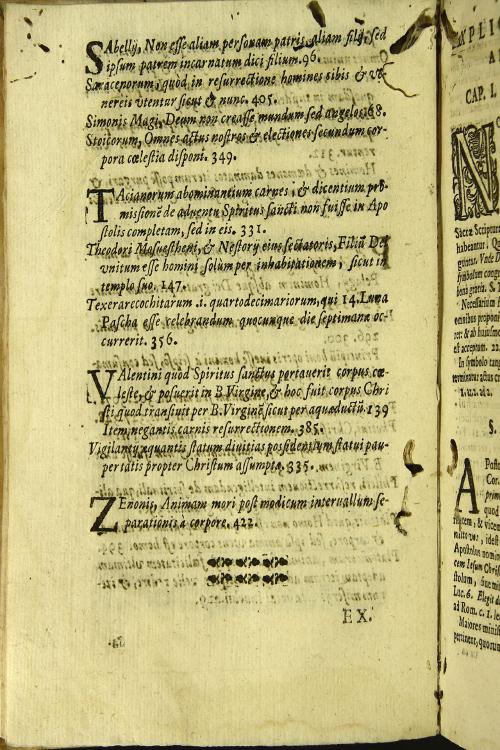 SAbellij, Non esse aliam personam patris, aliam filij, sed
ipsum patrem incarnatum dici filium. 96.
Saracenorum, quod in resurrectione homines cibis & ve-
nereis vtentur sicut & nunc. 405.
Simonis Magi, Deum non creasse mundum sed angelos 68.
Stoicorum, Omnes actus nostros & electiones secundum cor-
pora cœlestia disponi. 349.
TAcianorum abominantium carnes, & dicentium pro-
missionē de aduentu Spiritus sancti non fuisse in Apo
stolis completam, sed in eis. 331.
Theodori Mosuestheni, & Nestorij eius sectatoris, Filiū Dei
vnitum esse homini solùm per inhabitationem, sicut in
templo suo. 147.
Texerarecochitarum .i. quartodecimariorum, qui 14. Luna
Pascha esse celebrandum quocunque die septimanæ oc-
currerit. 356.
VAlentini quod Spiritus sanctus portauerit corpus cœ
leste, & posuerit in B. Virgine, & hoc fuit corpus Chri
sti quod transiuit per B. Virginē sicut per aquæductū. 139
Item, negantis carnis resurrectionem. 385.
Vigilantij æquantis statum diuitias possidentium, statui pau-
pertatis propter Christum assumptæ. 335.
ZEnonis, Animam mori post modicum interuallum se-
parationis à corpore. 422.
EX.
CAP. I.
Sacræ Scriptur
habeantur. Q
gitur. Vnde D
symbolum cong
bona gratis. S. T
Necessarium
omnibus proponi
ret: & ab huiusmo
est acceptum. 22.
In symbolo tang
terminatur actus
1. 11. 12. a 2.
S.
APosto
Cor.
prim
quod
ritatem, & vicem
mitto vos, idest
Apostolus nomin
cem Iesum Christ
stolum, siue m
Luc. 6. Elegit d
ad Rom. c. 1. le
Maiores minist
pertinent, quorum